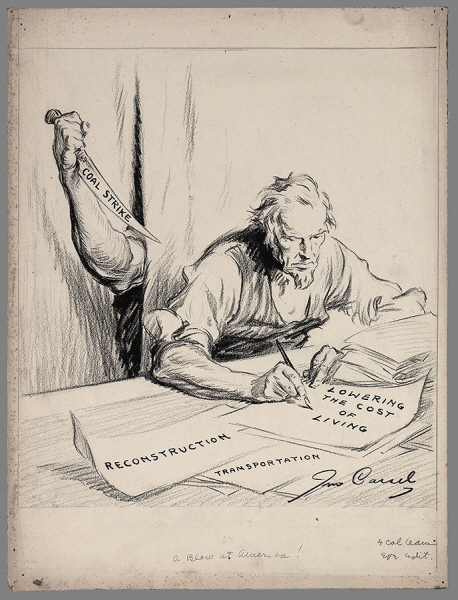 COAL STRIKE
LOWERING
THE COST
OF
LIVING
RECONSTRUCTION
TRANSPORTATION
Jno Cassel
A Blow at America!
4 col
Eve